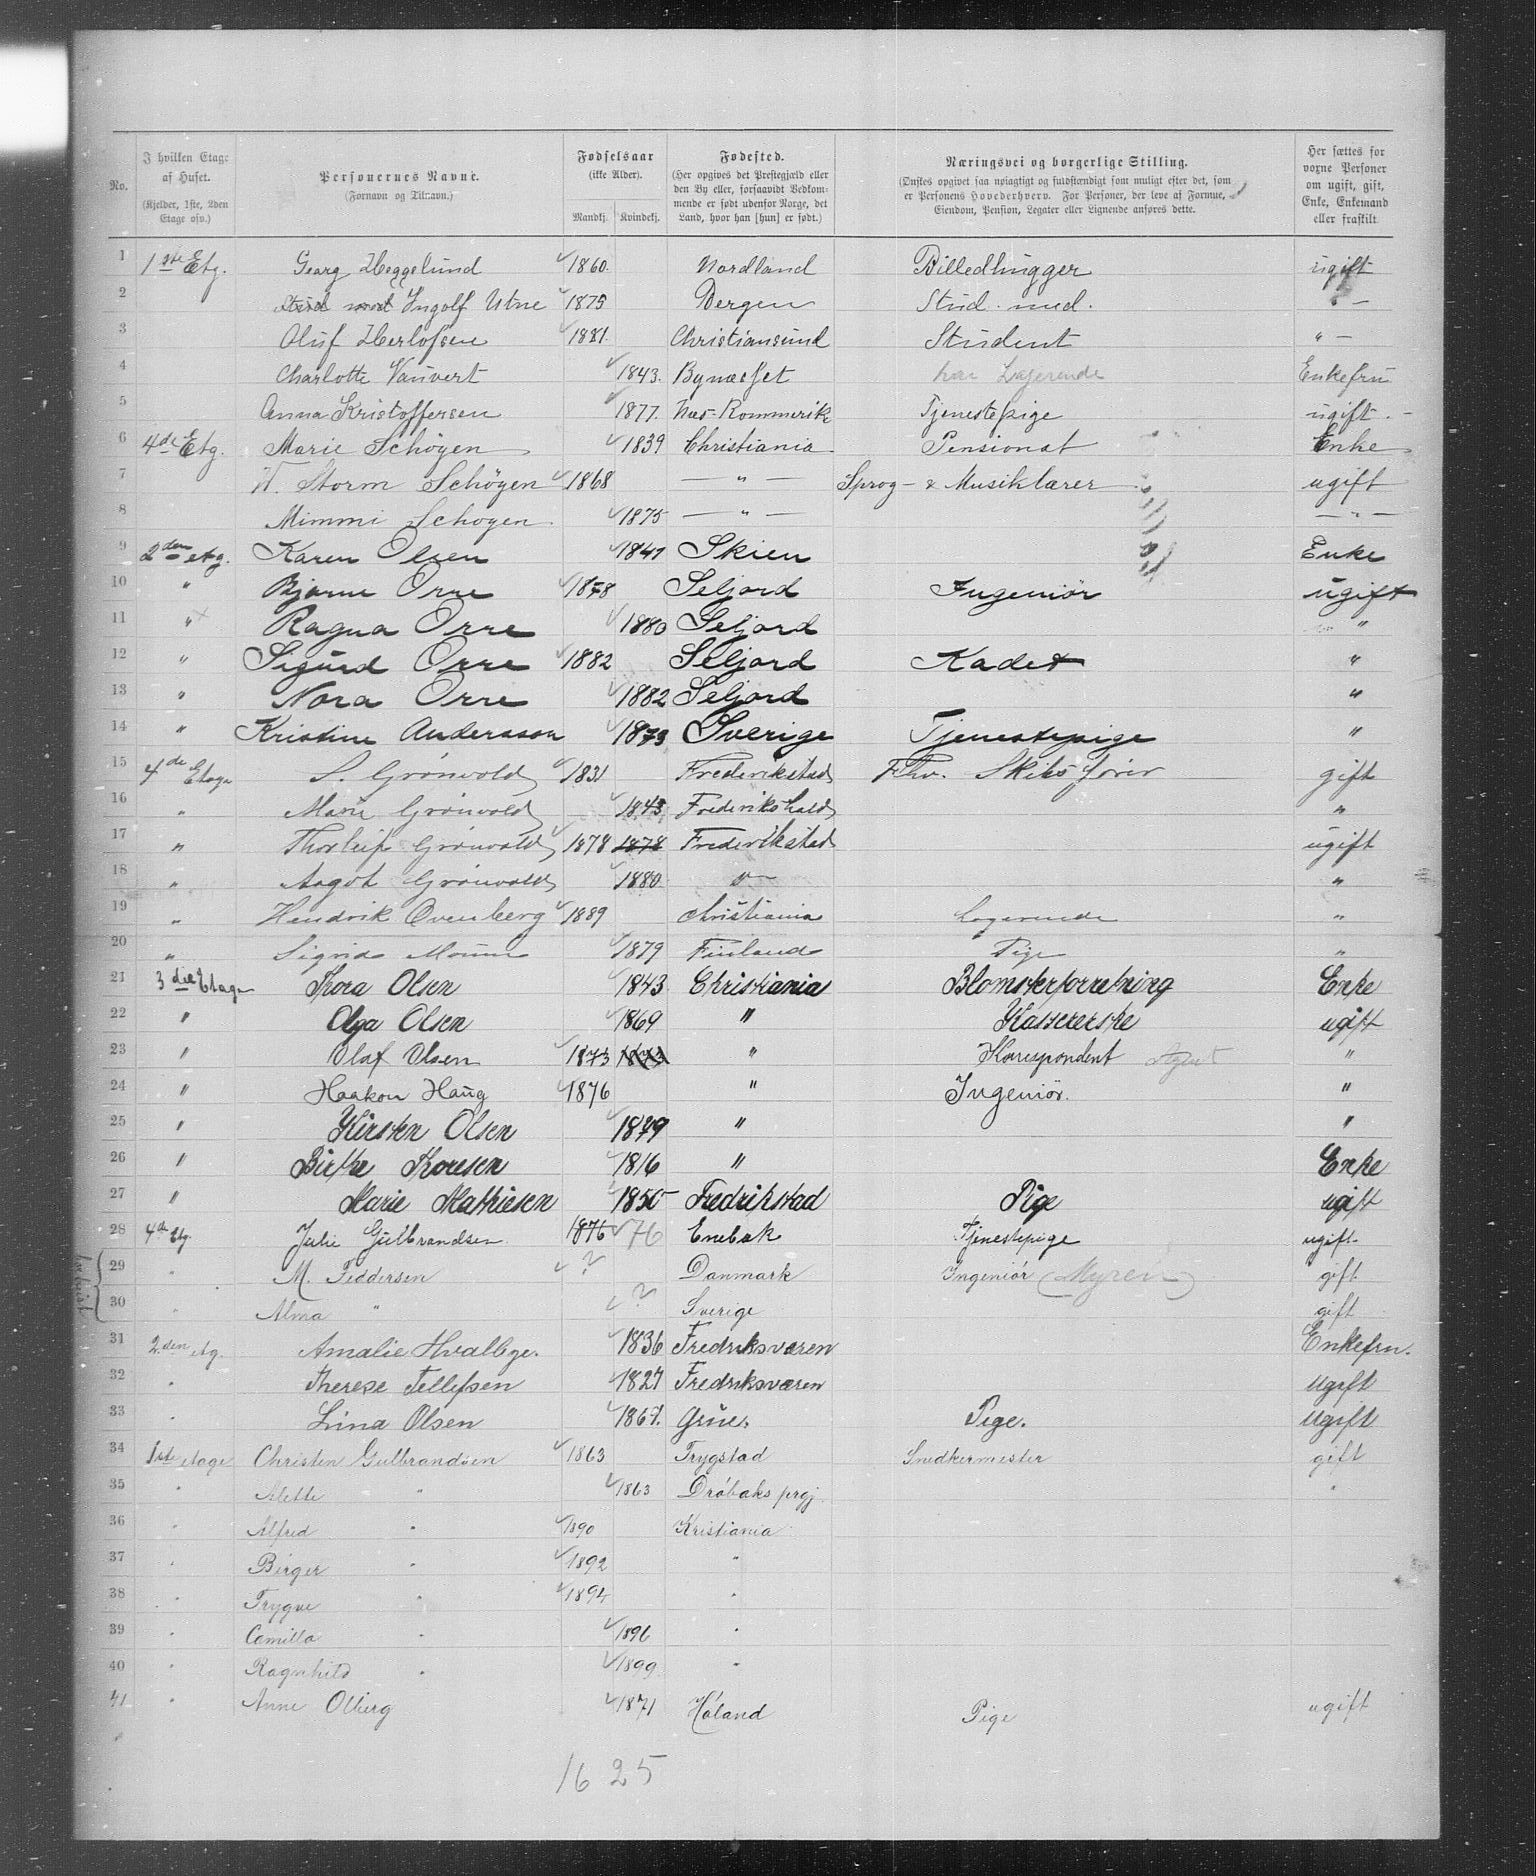 No. I hvilken Etage af Huset. (Kjelder, 1ste, 2den Etage osv.) Personernes Navne. (Fornavn og Tilnavn.) Fødselsaar (ikke Alder). Mandkj. Kvindekj. Fødested. (Her opgives det Prestegjæld eller den By eller, forsaavidt Vedkommende er født udenfor Norge, det Land, hvor han [hun] er født.) Næringsvei og borgerlige Stilling. (Ønskes opgivet saa nøiagtigt og fuldstændigt som muligt efter det, som er Personens Hovederhverv. For Personer, der leve af Formue, Eiendom, Pension, Legater eller Lignende anføres dette. Her sættes for voxne Personer om ugift, gift, Enke, Enkemand eller fraskilt.
1 1ste Etg. Georg Heggelund 1860. Nordland Billedhugger ugift
2 Stud med Ingolf Utne 1875 Bergen Stud. med. " —
3 Oluf Herlofsen 1881. Christiansund Student " —
4 Charlotte Vauvert 1843. Bynæsset har Logerende Enkefru
5 Anna Kristoffersen 1877. Næs-Rommerike Tjenestepige ugift. —
6 4de Etg. Marie Schøyen 1839 Christiania Pensionat Enke
7 W. Storm Schøyen 1868 — " — Sprog- & Musiklærer ugift
8 Mimmi Schøyen 1875 — " — — " —
9 2den etg. Karen Olsen 1841 Skien Enke
10 " Bjarne Orre 1878 Seljord Ingeniør ugift
11 " Ragna Orre 1880 Seljord "
12 " Sigurd Orre 1882 Seljord Kadet "
13 " Nora Orre 1882 Seljord "
14 " Kristine Andersson 1873 Sverige Tjenestepige "
15 4de Etage S. Grønvold 1831 Frederikstad Fhv. Skibsfører gift
16 " Marie Grønvold 1843 Frederikshald "
17 " Thorleif Grønvold 1878 1878 Frederikstad ugift
18 " Aagot Grønvold 1880 "— "
19 " Hendrik Ovenberg 1889 Christiania Logerende "
20 " Sigrid 1879 Finland Pige "
21 3die Etage Thora Olsen 1843 Christiania Blomsterforretning Enke
22 " Olga Olsen 1869 " Kassererske ugift
23 " Olaf Olsen 1873 1873 " Korrespondent Agent "
24 " Haakon Haug 1876 " Ingeniør. "
25 " Kirsten Olsen 1879 " "
26 " Birthe Thoresen 1816 " Enke
27 " Marie Mathiesen 1850 Fredrikstad Pige ugift
28 4de Etg. Julie Gulbrandsen 1876 76 Enebak Tjenestepige ugift.
29 " M. Feddersen ? Danmark Ingeniør (Myren) gift
30 " Alma " ? Sverige gift
31 2.den etg. Amalie Hvalbye. 1836 Fredriksværen Enkefru.
32 " Therese Tellefsen 1827 Fredriksværen Ugift
33 " Lina Olsen 1867. Grue. Pige. Ugift
34 1st etage Christen Gulbrandsen 1863 Trygstad Snedkermester gift
35 " Alette " 1863 Drøbaks prgj. "
36 " Alfred " 1890 Kristiania
37 " Birger " 1892 "
38 " Trygve " 1894 "
39 " Camilla " 1896 "
40 " Ragnhild " 1899 "
41 " Anne Olberg 1871 Høland Pige ugift
16 25